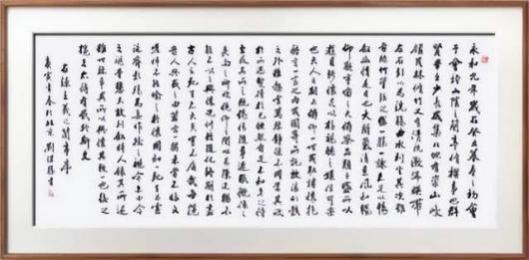 永和九年歲在癸丑暮春之初會
于會稽山陰之蘭亭修禊事也群
賢畢至少長咸集此地有崇山峻
領茂林修竹又有清流激湍映帶
左右引以為流觴曲水列坐其次雖
無絲竹管弦之盛一觴一詠亦足以暢
敘幽情是日也天朗氣清惠風和暢
仰觀宇宙之大俯察品類之盛所以
遊目騁懷足以極視聽之娛信可樂
也夫人之相與俯仰一世或取諸懷抱
悟言一室之內或因寄所託放浪形骸
之外雖趣舍萬殊靜躁不同當其欣
於所遇暫得於己快然自足不知老之將
至及其所之既倦情隨事遷感慨係之
矣向之所欣俛仰之間已為陳迹猶不
能不以之興懷況修短隨化終期於盡
古人云死生亦大矣豈不痛哉每攬
昔人興感之由若合一契未嘗不臨文
嗟悼不能喻之於懷固知一死生為虛
誕齊彭殤為妄作後之視今亦由今
之視昔悲夫故列敘時人錄其所述
雖世殊事異所以興懷其致一也後之
攬者亦將有感於斯文
右錄王羲之蘭亭序
庚寅年春於北京劉